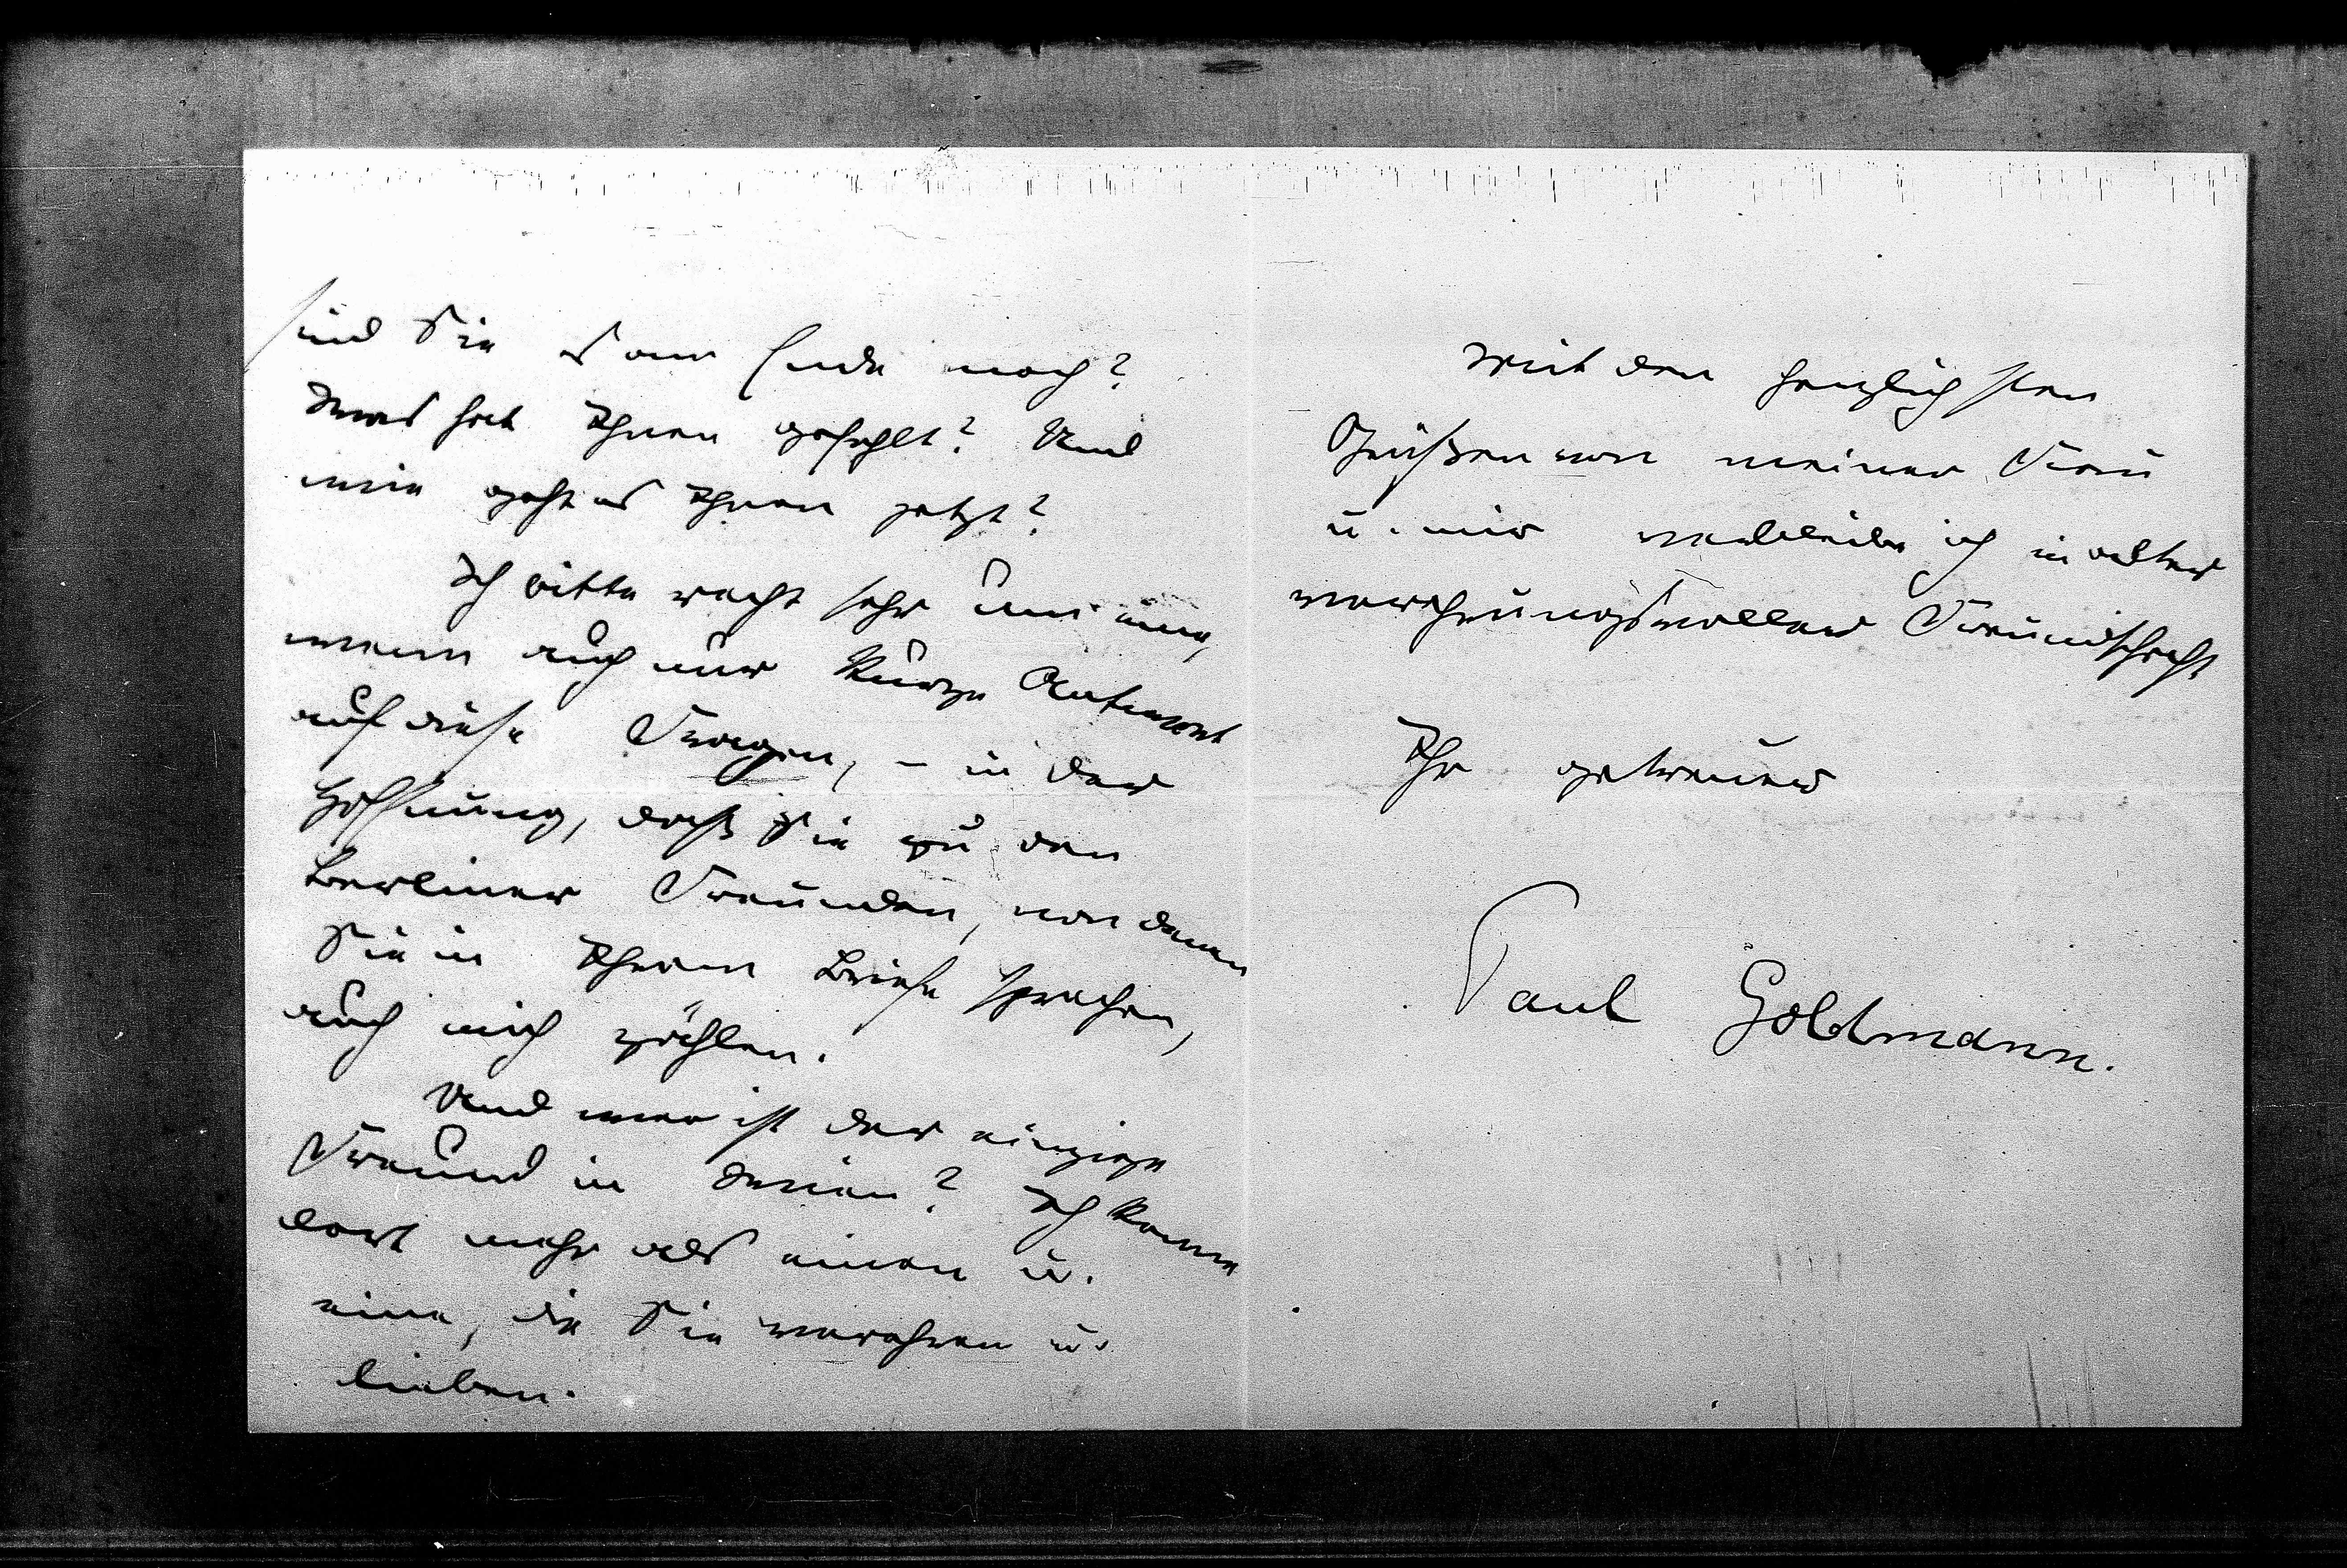 sind Sie es am Ende noch?
Was hat Ihnen gefehlt? Und
wie geht es Ihnen jetzt?
Ich bitte recht sehr um eine,
wenn auch nur kurze Antwort
auf diese Fragen, – in der
Hoffnung, daß Sie zu den
Berliner Freunden, von denen
Sie in Ihrem Briefe sprachen,
auch mich zählen.
Und wer ist der einzige
Freund in Wien? Ich kenne
dort mehr als einen u.
eine, die Sie verehren u.
lieben.
Mit den herzlichsten
Grüßen von meiner Frau
u. mir verbleibe ich in alter
verehrungsvoller Freundschaft
Ihr getreuer
Paul Goldmann.